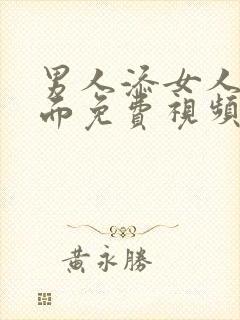 男人添女人
而免費視頻
黃永勝